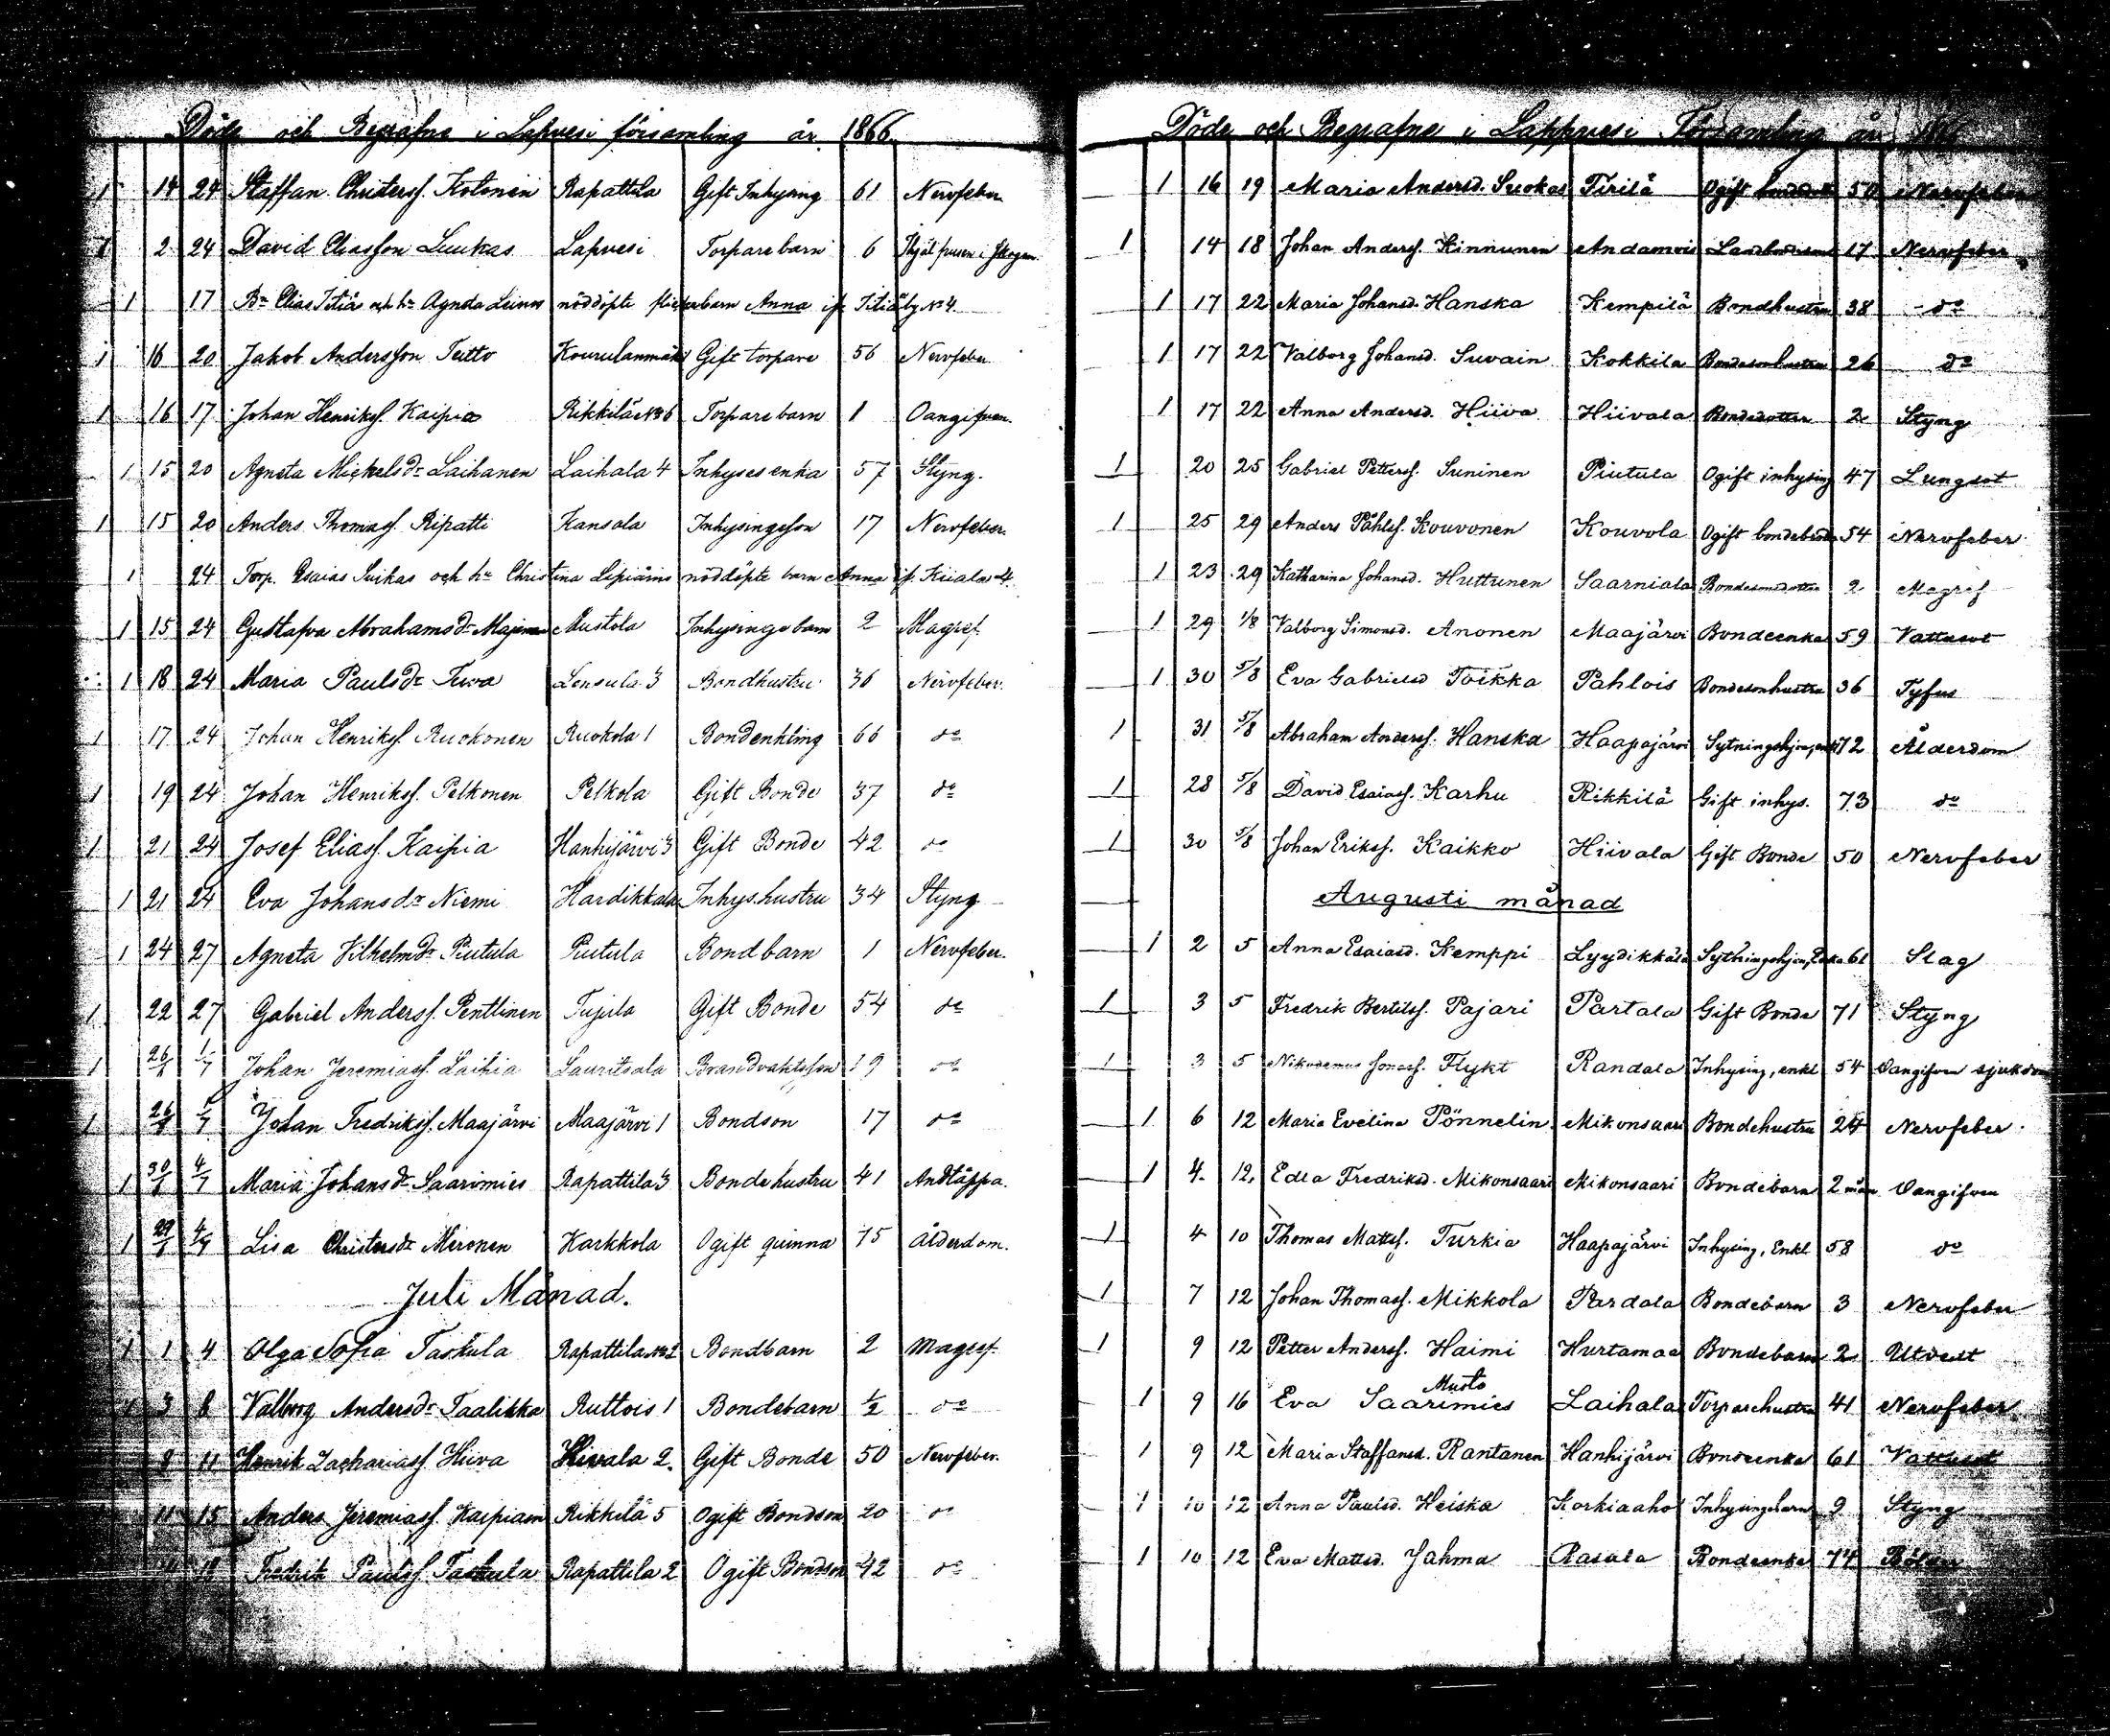 Döde och Begrafne i Lapvesi församling år 1866.
1 14 24 Staffan Christerss. Kotonen Rapattila Gift Inhysing 61 Nervfeber
1 2 24 David Eliasson Luukas Lapvesi Torparebarn 6 i Skogen.
1 17 Bn Elias Titiä och hu Agnda Leinos nöddöpte flickebarn Anna if. Titiä by No 4.
1 16 20 Jakob Andersson Teitto Kourulanmäki Gift torpare 56 Nervfeber
1 16 17 Johan Henrikss. Kaipia Rikkilä No 6 Torparebarn 1 Oangifven.
1 15 20 Agneta Mickelsdr Laihanen Laihala 4 Inhysesenka 57 Styng.
1 15 20 Anders Thomass. Ripatti Kansola Inhysingeson 17 Nervfeber.
1 24 Torp. Esaias Suikas och hu Christina nöddöpte barn Anna if. Kiiala 4.
1 15 24 Gustafva Abrahamsdr Mustola Inhysingebarn 2 Magref.
1 18 24 Maria Paulsdr Tuva Lensula 3 Bondhustru 36 Nervfeber.
1 17 24 Johan Henrikss. Ruokonen Ruokola 1 Bondenkling 66 do
1 19 24 Johan Henrikss. Pelkonen Pelkola Gift Bonde 37 do
1 21 24 Josef Eliass. Kaipia Hanhijärvi 3 Gift Bonde 42 do
1 21 24 Eva Johansdr Niemi Hardikkala Inhys.hustru 34 Styng
1 24 27 Agneta Vilhelmdr Piutula Piutula Bondbarn 1 Nervfeber.
1 22 27 Gabriel Anderss. Penttinen Tujula Gift Bonde 54 do
1 26/6 1/7 Johan Jeremiass. Laihia Lauritsala Brandvaktsson 19 do
1 26/6 1/7 Johan Fredrikss. Maajärvi Maajärvi 1 Bondson 17 do
1 30/6 4/7 Maria Johansdr Saarimies Rapattila 3 Bondehustru 41 Andtäppa.
1 29/6 4/7 Lisa Christersdr Mironen Karkkola Ogift quinna 75 Ålderdom.
Juli Månad.
1 1 4 Olga Sofia Taskula Rapattila No 2 Bondbarn 2 Magref.
1 3 8 Valborg Andersdr Taalikka Ruttois 1 Bondebarn 1/2 do
9 11 Henrik Zachariass. Hiiva Hiivala 2. Gift Bonde 50 Nervfeber.
11 15 Anders Jeremiass. Kaipiain Rikkilä 5 Ogift Bondson 20 do
18 Fredrik Paulss. Taskula Rapattila 2 Ogift Bondson 42 do
Döde och Begrafne i Lappvesi Församling år 1866
1 16 19 Maria Andersd. Suokas Tirilä Ogift 50 Nervfeber
1 14 18 Johan Anderss. Kinnunen Andamois 17 Nervfeber
1 17 22 Maria Johansd. Hanska Kempilä Bondhustru 38 do
1 17 22 Valborg Johansd. Suvain Kokkila Bondesonhustru 26 do
1 17 22 Anna Andersd. Hiiva Hiivala Bondedotter 2 Styng
1 20 25 Gabriel Petterss. Suninen Piutula Ogift inhysing 47 Lungsot
1 25 29 Anders Påhlss. Kouvonen Kouvola Ogift bondebroder 54 Nervfeber
1 23 29 Katharina Johansd. Huttunen Saarniala Bondesonsdotter 2 Magref
1 29 1/8 Valborg Simonsd. Anonen Maajärvi Bondeenka 59 Vattusot
1 30 5/8 Eva Gabrielsd Toikka Pahlois Bondesonhustru 36 Tyfus
1 31 5/8 Abraham Anderss. Hanska Haapajärvi Sytningshjon, enkl 72 Ålderdom
1 28 5/8 David Esaiass. Karhu Rikkilä Gift inhys. 73 do
1 30 5/8 Johan Erikss. Kaikko Hiivala Gift Bonde 50 Nervfeber
Augusti månad
1 2 5 Anna Esaiasd. Kemppi Lyydikkälä Sytningshjon, Enka 61 Slag
1 3 5 Fredrik Bertilss. Pajari Partala Gift Bonde 71 Styng
1 3 5 Nikodemus Jonass. Flykt Randala Inhysing, enkl 54 Oangifven sjukdom
1 6 12 Maria Evelina Pönnelin Mikonsaari Bondehustru 24 Nervfeber
1 4 12 Edla Fredriksd. Mikonsaari Mikonsaari Bondebarn 2 mån Oangifven
1 4 10 Thomas Mattss. Turkia Haapajärvi Inhysing, Enkl 58 do
1 7 12 Johan Thomass. Mikkola Pardala Bondebarn 3 Nervfeber
1 9 12 Petter Anderss. Haimi Hurtamaa Bondebarn 2 Utvext
1 9 16 Eva Saarimies Musto Laihala Torparehustru 41 Nervfeber
1 9 12 Maria Staffansd. Rantanen Hanhijärvi Bondeenka 61 Vattusot
1 10 12 Anna Paulsd. Heiska Korkiaaho Inhysingebarn 9 Styng
1 10 12 Eva Mattsd. Jahma Rasala Bondeenka 74